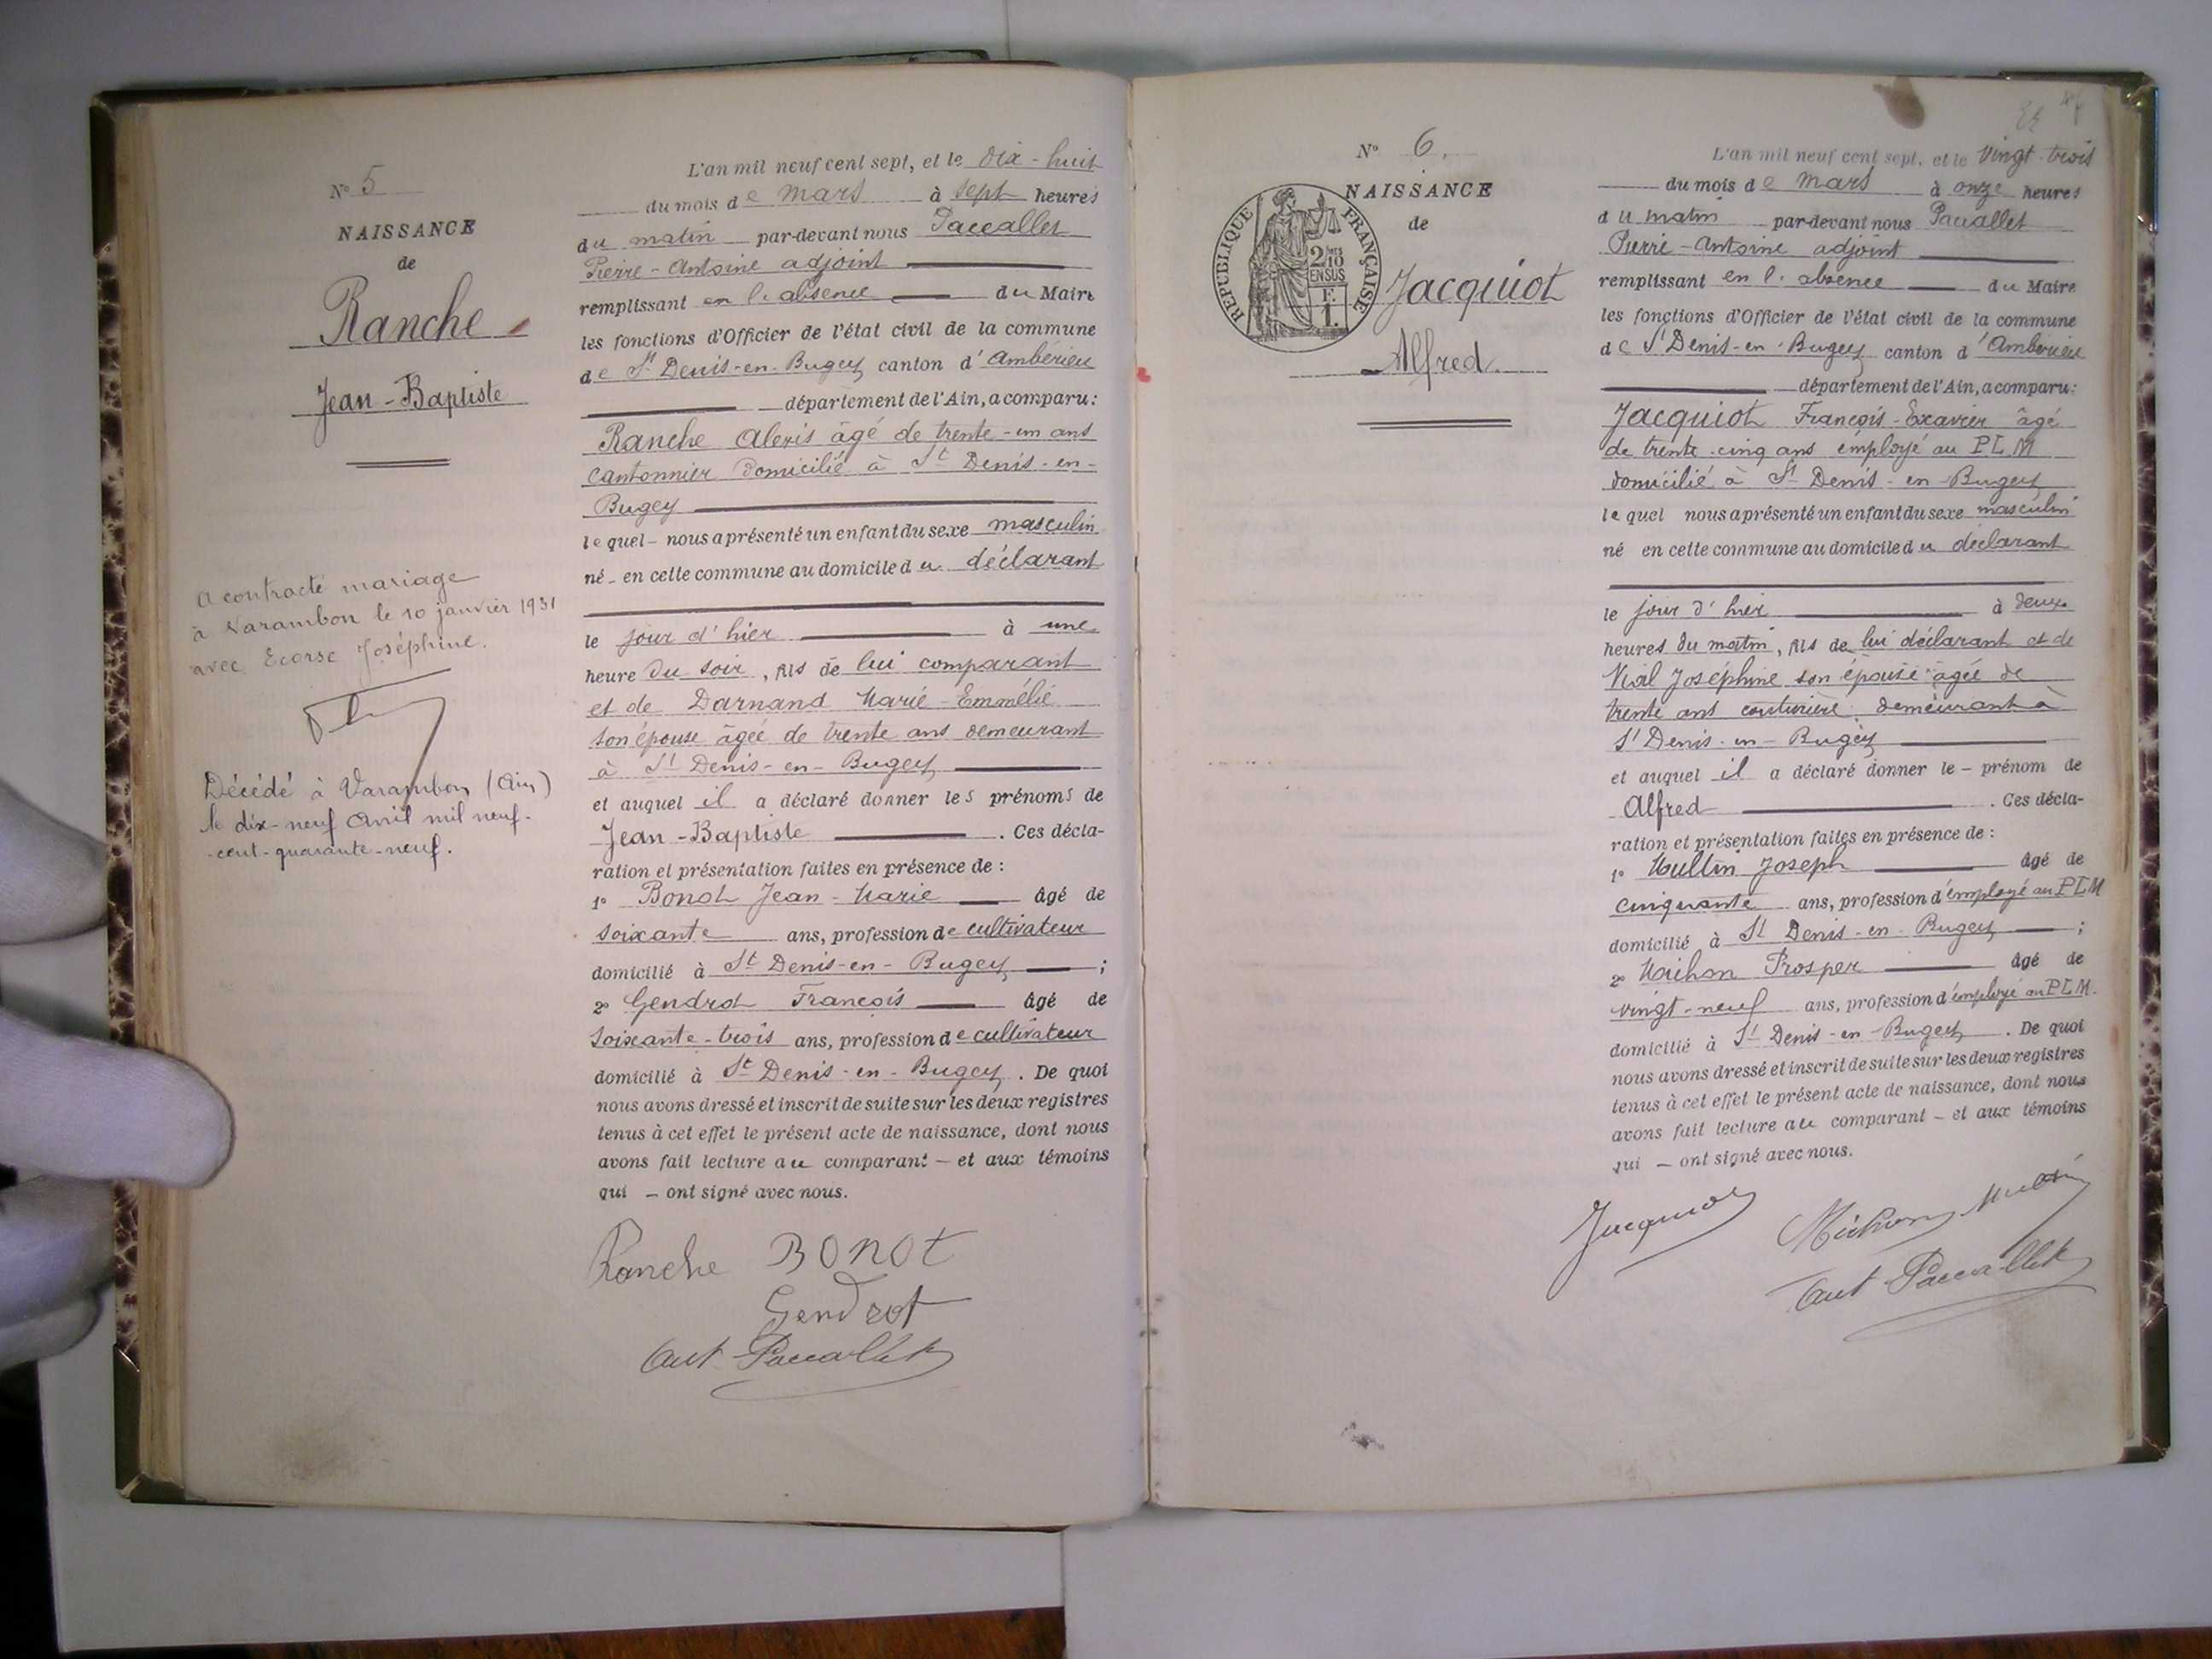 N° 5
NAISSANCE
de
Ranche
Jean-Baptiste
A contracté mariage
à Varambon le 10 janvier 1931
avec Ecorse Joséphine.
Décédé à Varambon (Ain)
le dix-neuf Avril mil neuf-
-cent-quarante-neuf.
L'an mil neuf cent sept, et le dix-huit
du mois de mars à sept heures
du matin par-devant nous Paccallet
Pierre-Antoine adjoint
remplissant en l'absence du Maire
les fonctions d'Officier de l'état civil de la commune
de St Denis-en-Bugey canton d'Ambérieu
département de l'Ain, a comparu :
Ranche Alexis âgé de trente-un ans
cantonnier domicilié à St Denis-en-
Bugey
lequel - nous a présenté un enfant du sexe masculin
né - en cette commune au domicile du déclarant
le jour d'hier à une
heure du soir, fils de lui comparant
et de Darnand Marie-Emmélie
son épouse âgée de trente ans demeurant
à St Denis-en-Bugey
et auquel il a déclaré donner les prénoms de
Jean-Baptiste . Ces décla-
ration et présentation faites en présence de :
1° Bonot Jean-Marie âgé de
soixante ans, profession de cultivateur
domicilié à St Denis-en-Bugey ;
2° Gendrot François âgé de
soixante-trois ans, profession de cultivateur
domicilié à St Denis-en-Bugey . De quoi
nous avons dressé et inscrit de suite sur les deux registres
tenus à cet effet le présent acte de naissance, dont nous
avons fait lecture au comparant - et aux témoins
qui - ont signé avec nous.
Ranche BONOT
Gendrot
Ant Paccallet
N° 6.
NAISSANCE
de
Jacquiot
Alfred.
REPUBLIQUE FRANÇAISE
2/10
EN SUS
F.
1.
L'an mil neuf cent sept, et le vingt-trois
du mois de mars à onze heures
du matin par-devant nous Paccallet
Pierre-Antoine adjoint
remplissant en l'absence du Maire
les fonctions d'Officier de l'état civil de la commune
de St Denis-en-Bugey canton d'Ambérieu
département de l'Ain, a comparu :
Jacquiot François-Exavier âgé
de trente-cinq ans employé au PLM
domicilié à St Denis-en-Bugey
lequel nous a présenté un enfant du sexe masculin
né en cette commune au domicile du déclarant
le jour d'hier à deux
heures du matin, fils de lui déclarant et de
Vial Joséphine son épouse âgée de
trente ans couturière demeurant à
St Denis-en-Bugey
et auquel il a déclaré donner le - prénom de
Alfred . Ces décla-
ration et présentation faites en présence de :
1° Multin Joseph âgé de
cinquante ans, profession d'employé au PLM
domicilié à St Denis-en-Bugey ;
2° Michon Prosper âgé de
vingt-neuf ans, profession d'employé au PLM.
domicilié à St Denis-en-Bugey . De quoi
nous avons dressé et inscrit de suite sur les deux registres
tenus à cet effet le présent acte de naissance, dont nous
avons fait lecture au comparant - et aux témoins
qui - ont signé avec nous.
Jacquiot Michon Multin
Ant Paccallet